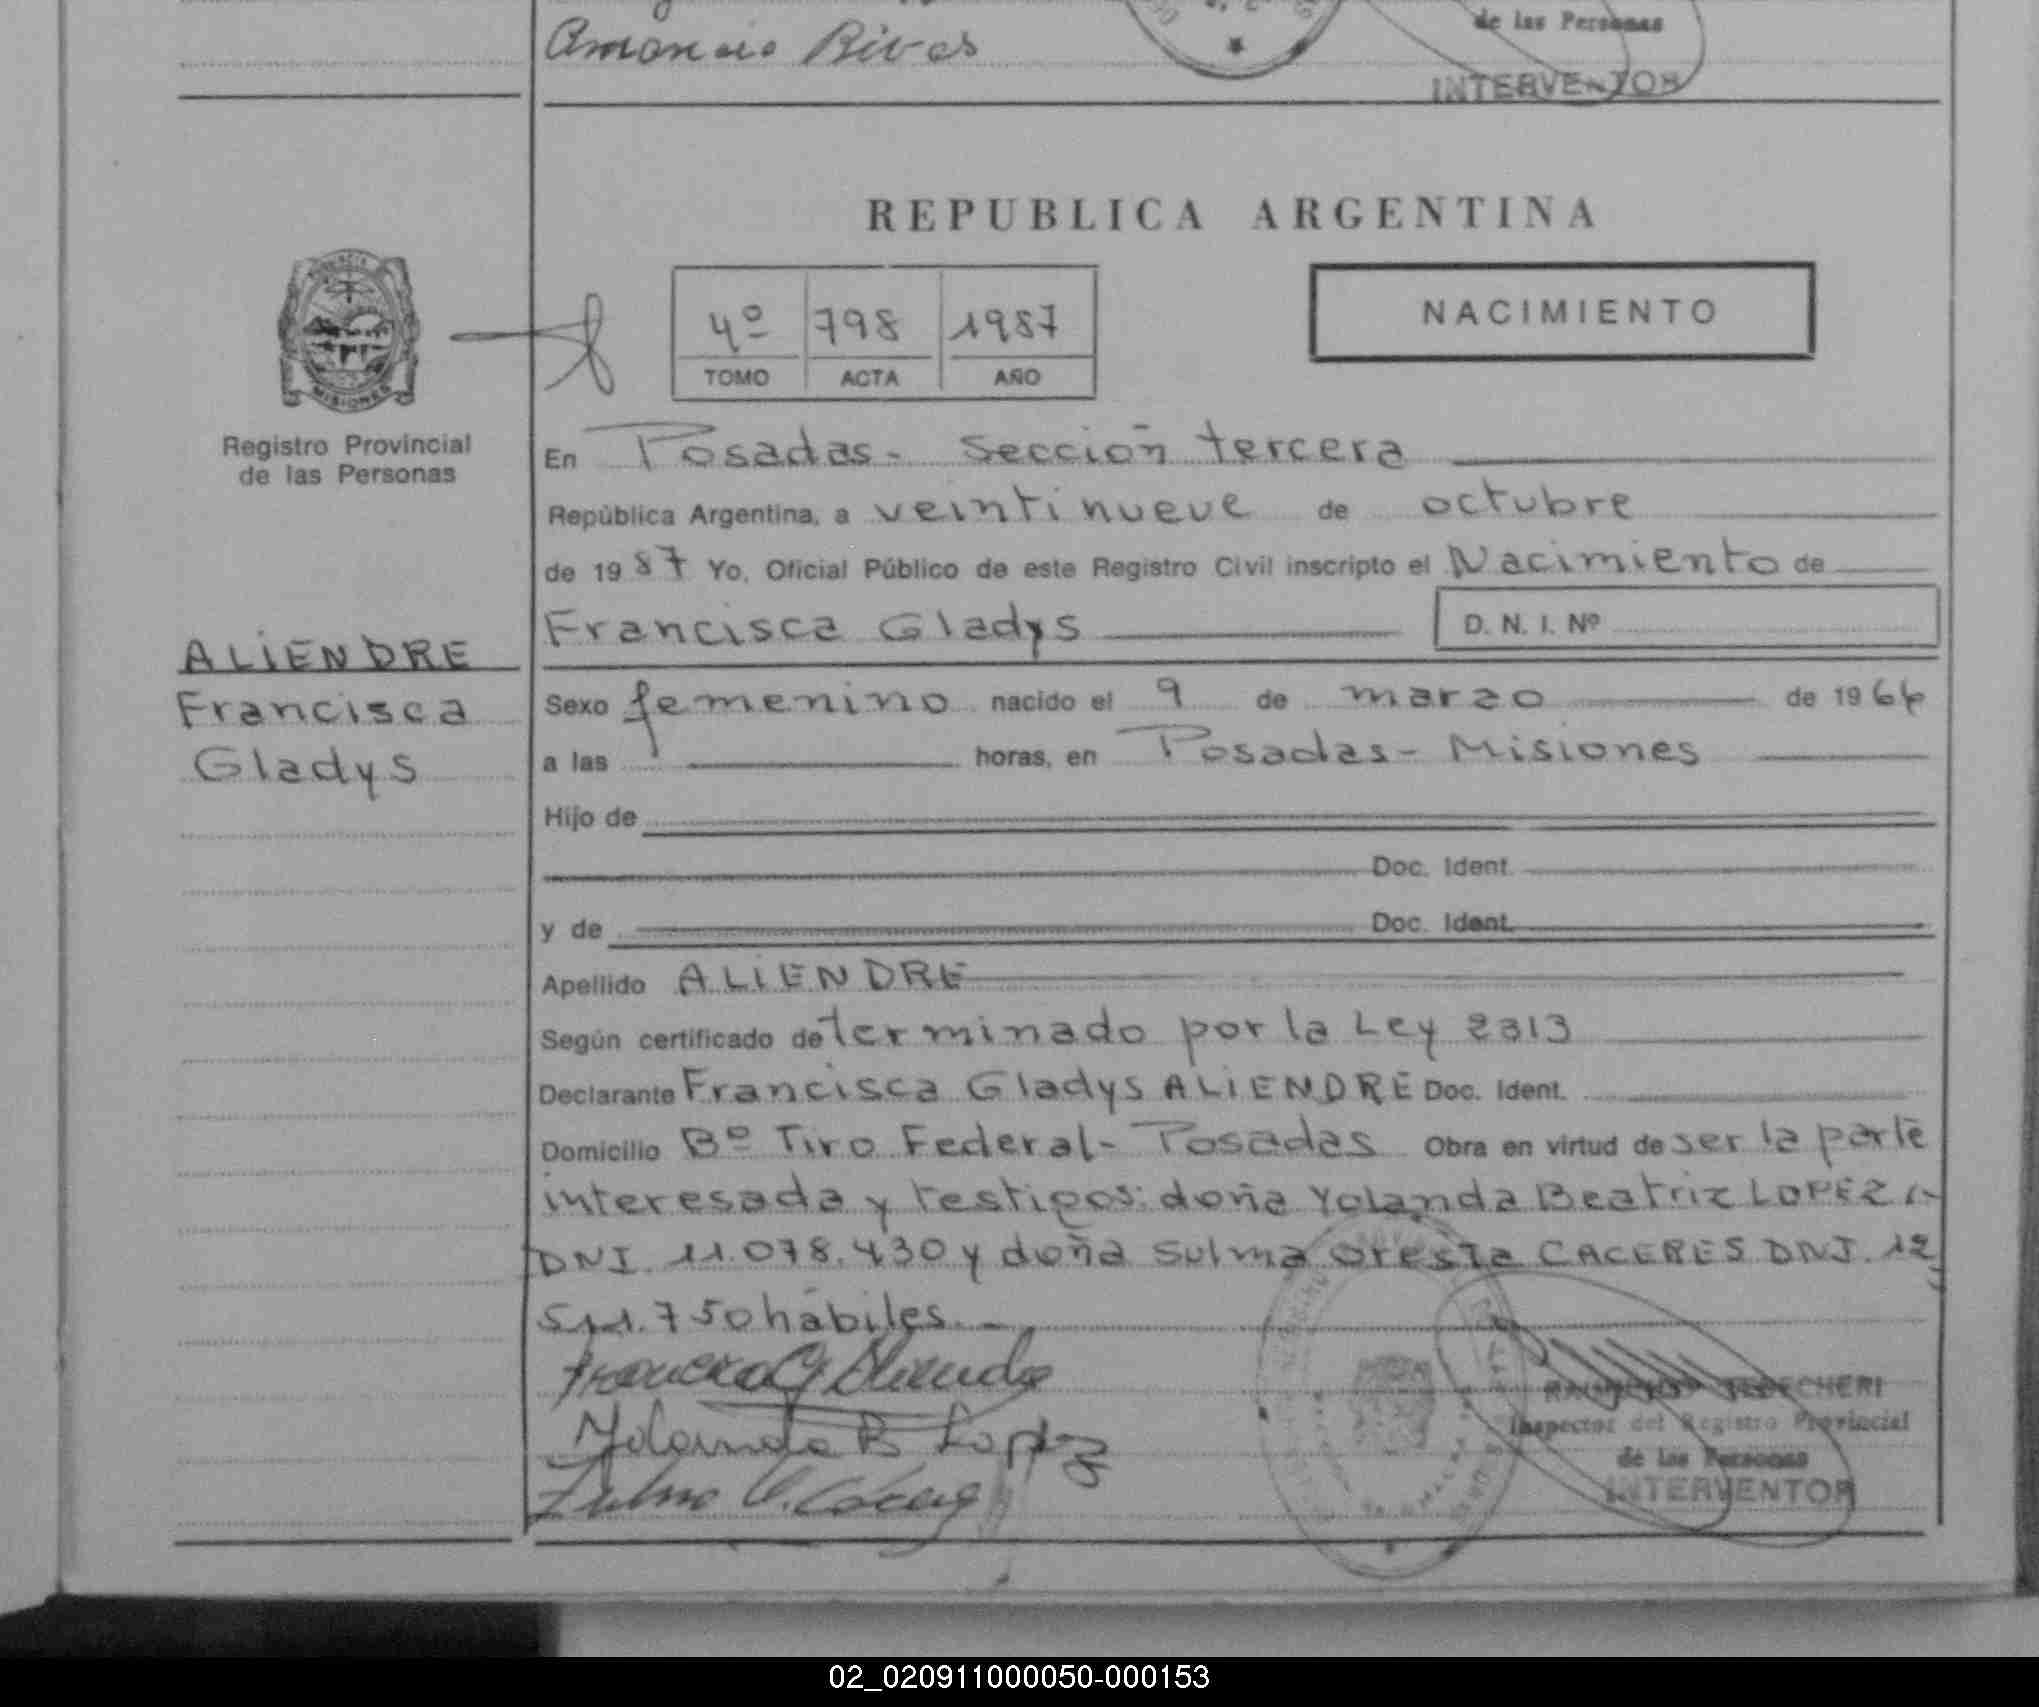 de las Personas
Amancio Rivas
INTERVENTOR
REPUBLICA ARGENTINA
4º 798 1987
TOMO ACTA AÑO
NACIMIENTO
PROVINCIA
MISIONES
Registro Provincial
de las Personas
En Posadas- Sección tercera
República Argentina, a veintinueve de octubre
de 1987 Yo, Oficial Público de este Registro Civil inscripto el Nacimiento de
Francisca Gladys D. N. I. Nº
ALIENDRE
Francisca
Gladys
Sexo femenino nacido el 9 de marzo de 1964
a las horas, en Posadas- Misiones
Hijo de
Doc. Ident.
y de Doc. Ident.
Apellido ALIENDRE
Según certificado determinado por la Ley 2313
Declarante Francisca Gladys ALIENDRE Doc. Ident.
Domicilio Bº Tiro Federal- Posadas Obra en virtud de ser la parte
interesada y testigos: doña Yolanda Beatriz LOPEZ
DNI. 11.078.430 y doña Sulma Oresta CACERES DNI. 12
511.750 hábiles.-
Francisca G Aliendre
Yolanda B Lopez
Zulma O. Cáceres
TEDECHERI
Inspector del Registro Provincial
de las Personas
INTERVENTOR
02_020911000050-000153